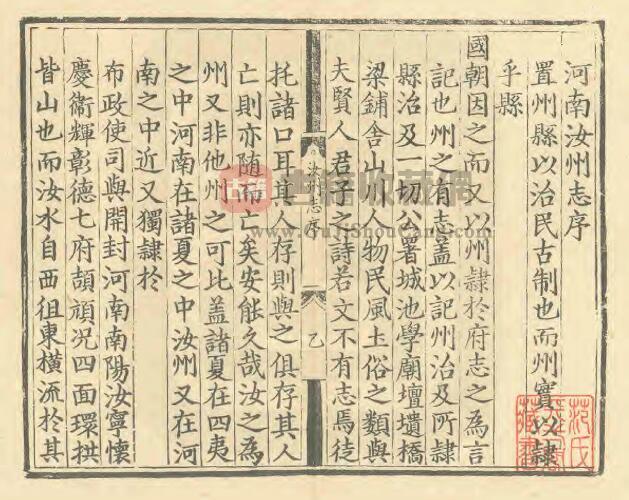 河南汝州志序
置州縣以治民古制也而州實以隸
乎縣
國朝因之而又以州隸於府志之為言
記也州之有志蓋以記州治及所隸
縣治及一切公署城池學廟壇壝橋
梁鋪舍山川人物民風土俗之類與
夫賢人君子之詩若文不有志焉徒
汝州志序
乙
托諸口耳其人存則與之俱存其人
亡則亦随而亡矣安能久哉汝之為
州又非他州之可比蓋諸夏在四夷
之中河南在諸夏之中汝州又在河
南之中近又獨隸於
布政使司與開封河南南陽汝寧懷
慶衞輝彰德七府頡頏況四面環拱
皆山也而汝水自西徂東横流於其
古籍
書籍收藏網
www.GuJiShouCang.Com
范氏
藏書